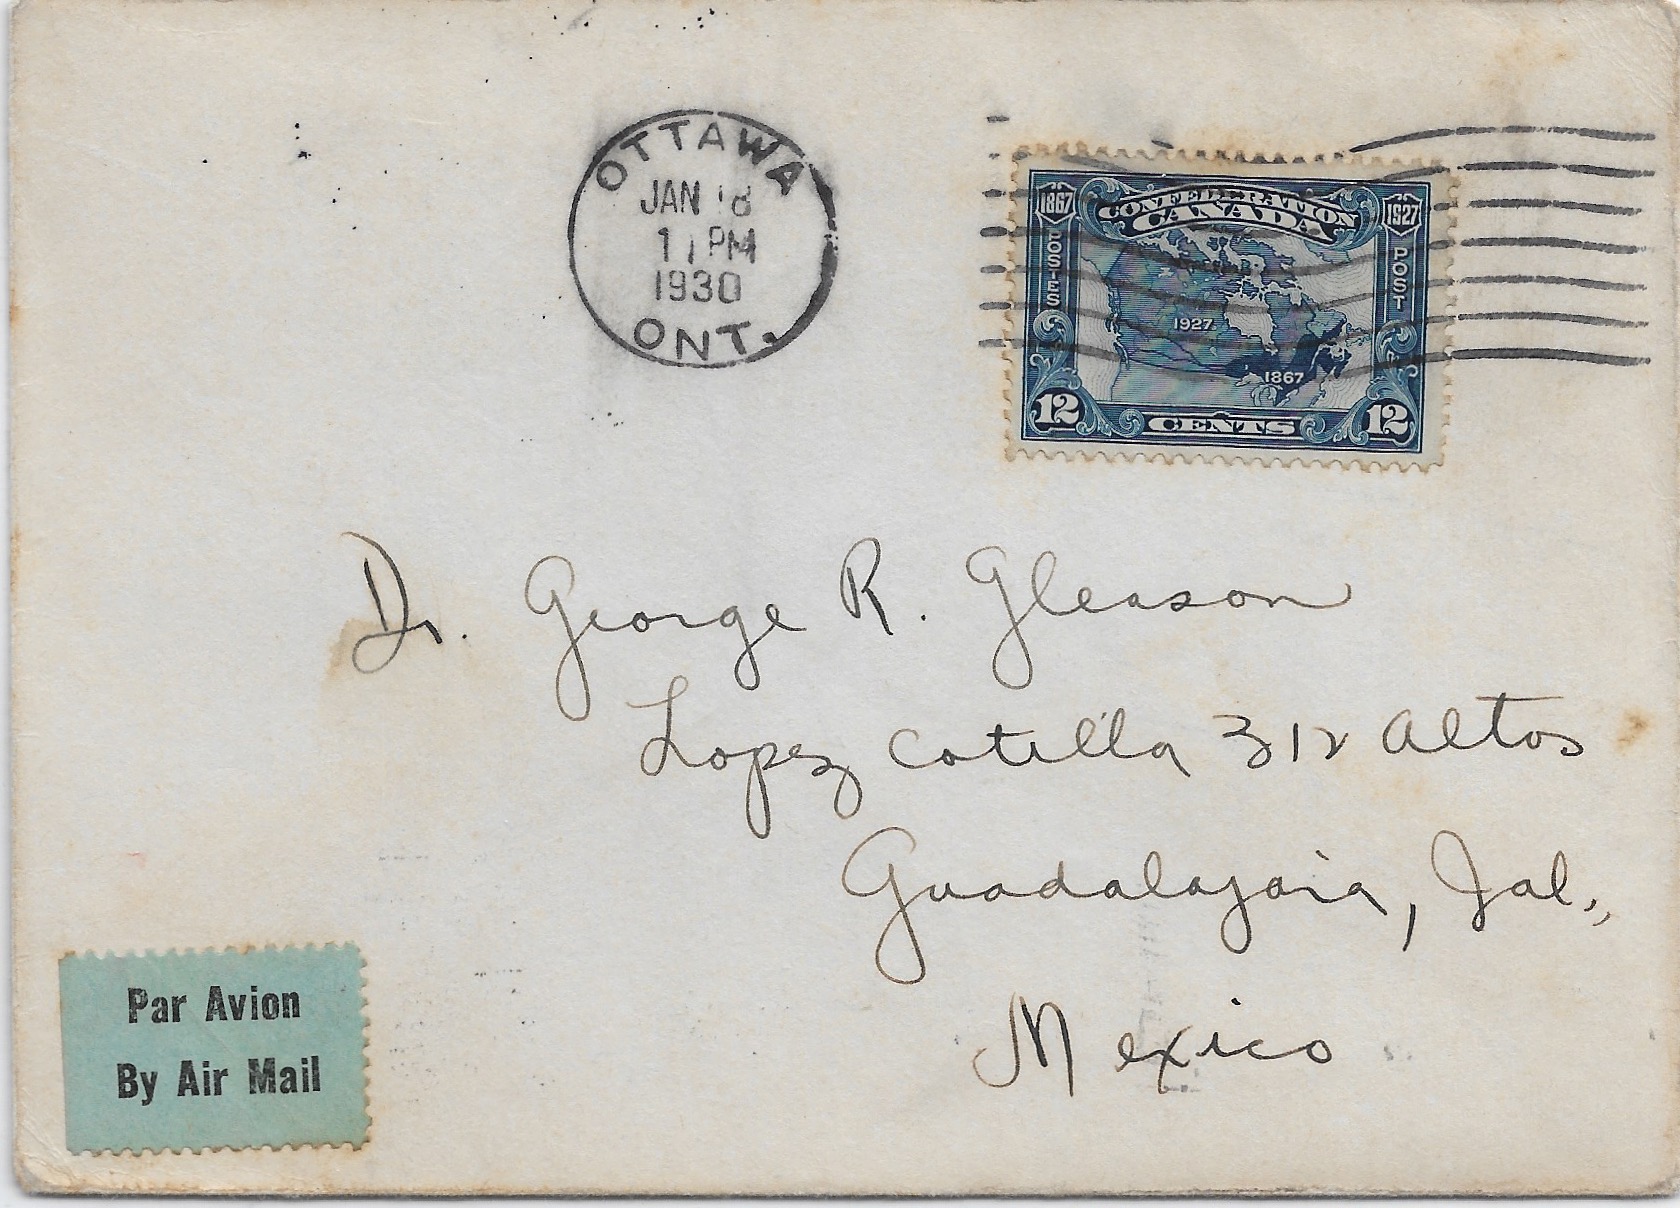 OTTAWA
JAN 18
11 PM
1930
ONT.
1867 CONFEDERATION 1927
CANADA
POSTES POST
1927
1867
12 CENTS 12
Dr. George R. Gleason
Lopez Cotilla 312 Altos
Guadalajara, Jal.,
Mexico
Par Avion
By Air Mail